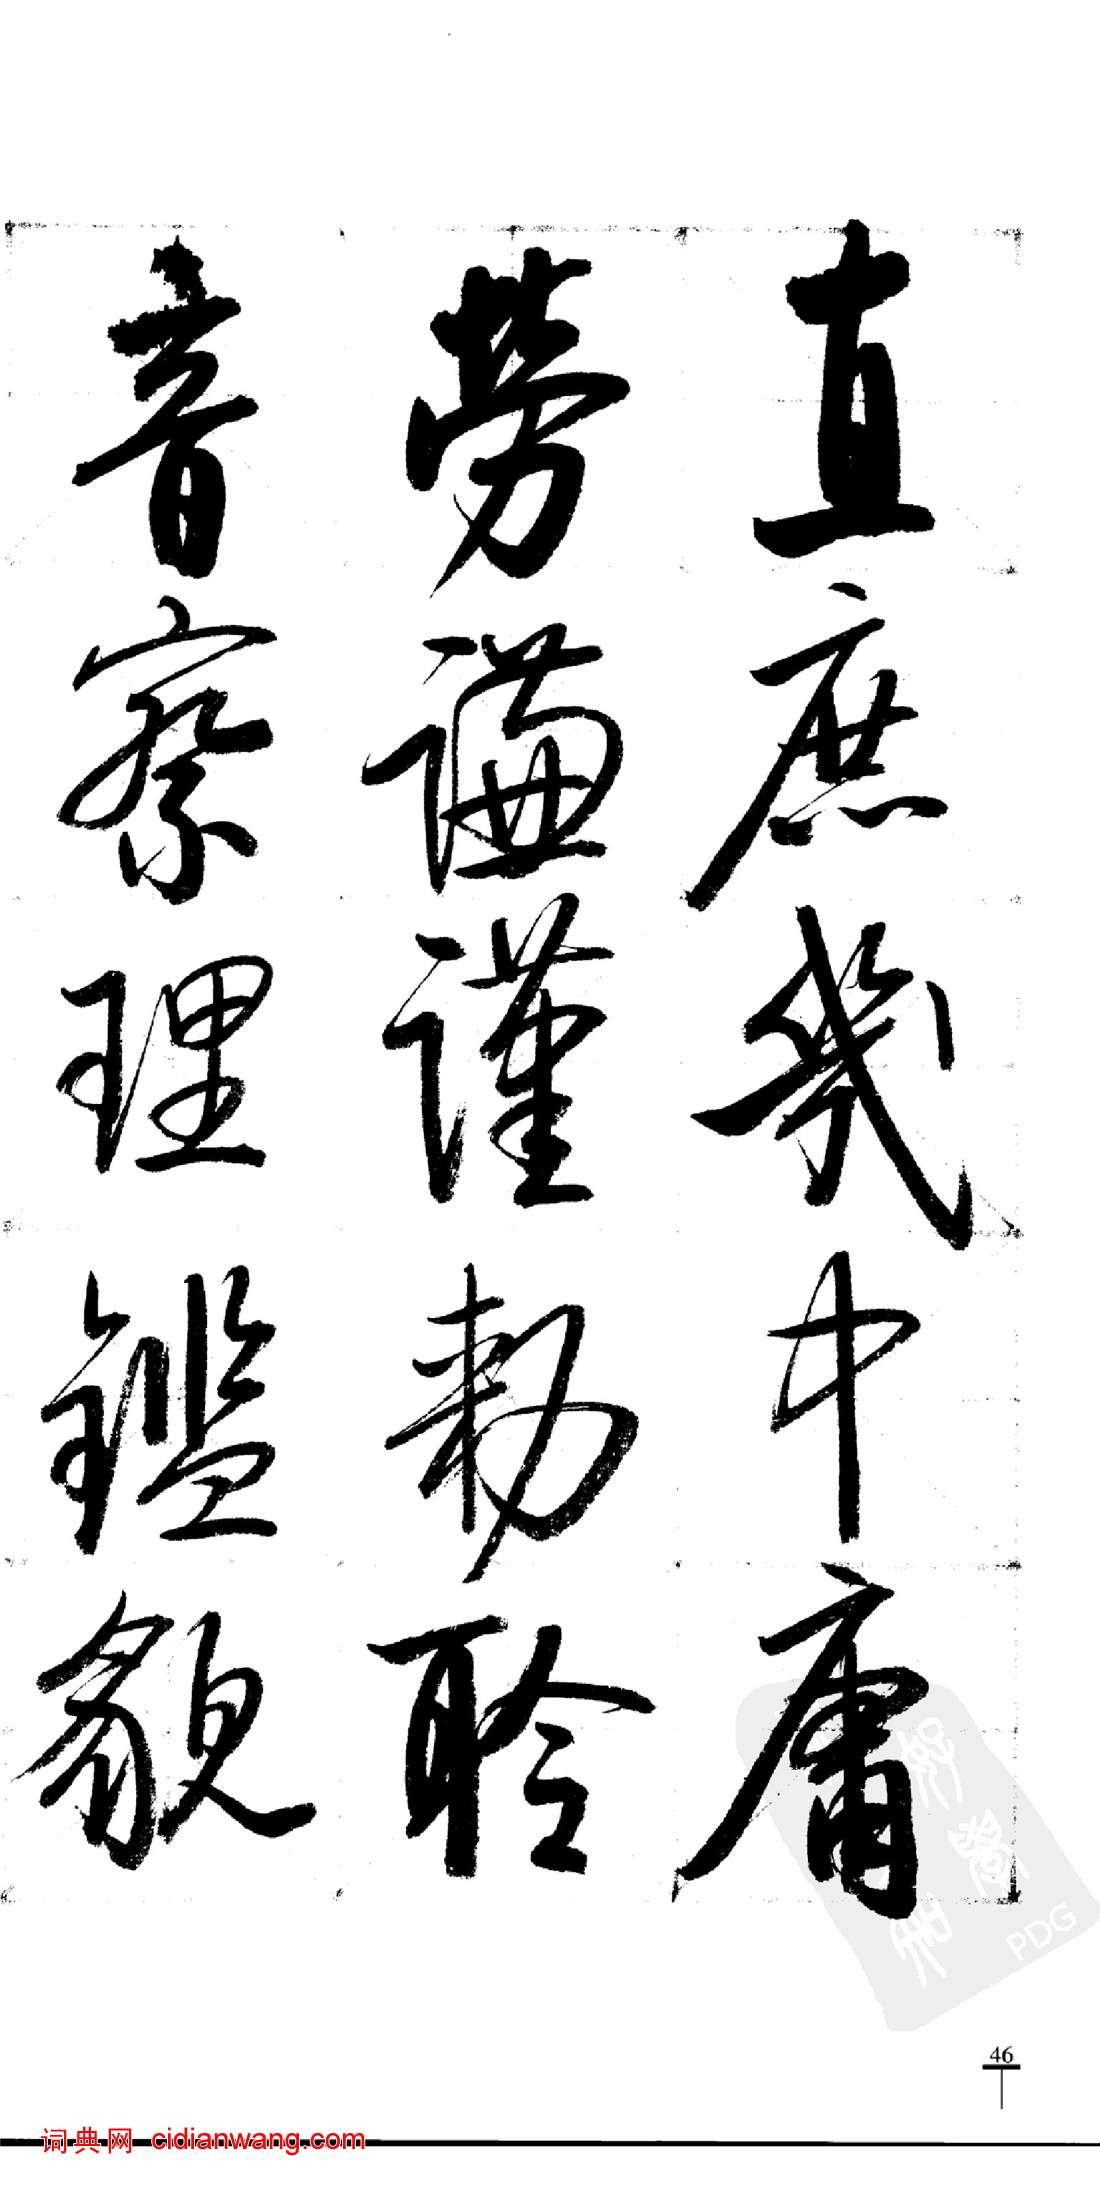 直庶幾中庸
勞謙謹勅聆
音察理鑑貌
PDG
46
词典网 cidianwang.com